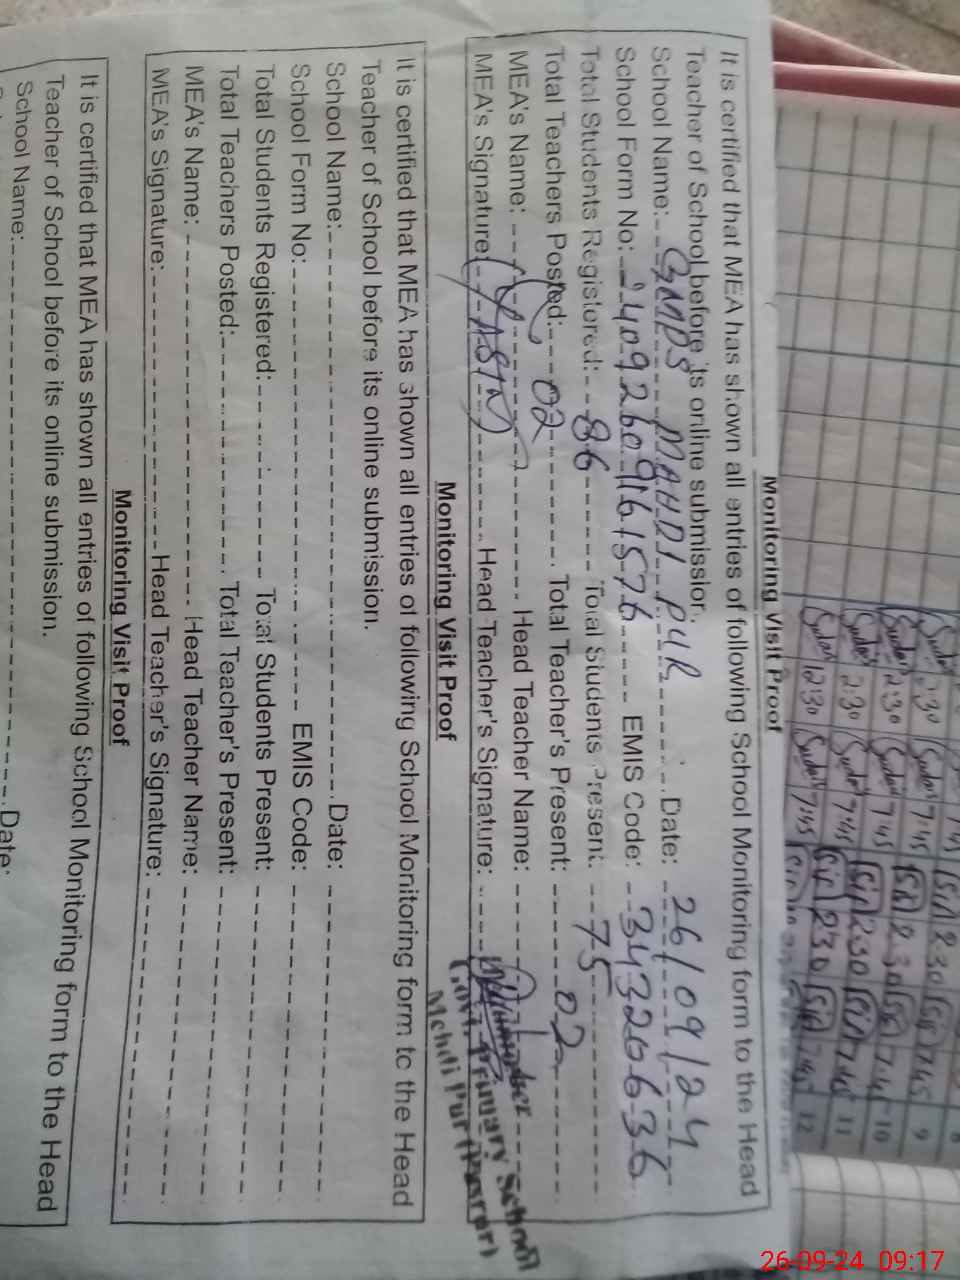 Monitoring Visit Proof
It is certified that MEA has shown all entries of following School Monitoring form to the Head
Teacher of School before its online submission.
School Name: GBPS MAHDI PUR Date: 26/09/24
School Form No: 24092609161576 EMIS Code: 34320636
Total Students Registered: 86 Total Students Present: 75
Total Teachers Posted: 02 Total Teacher's Present: 02
MEA's Name: Head Teacher Name:
MEA's Signature: (YASIN) Head Teacher's Signature:
Govt. Primary School
Mehdi Pur (Pasrur)
Monitoring Visit Proof
It is certified that MEA has shown all entries of following School Monitoring form to the Head
Teacher of School before its online submission.
School Name: Date:
School Form No: EMIS Code:
Total Students Registered: Total Students Present:
Total Teachers Posted: Total Teacher's Present:
MEA's Name: Head Teacher Name:
MEA's Signature: Head Teacher's Signature:
Monitoring Visit Proof
It is certified that MEA has shown all entries of following School Monitoring form to the Head
Teacher of School before its online submission.
School Name: Date:
9
10
11
12
26-09-24 09:17